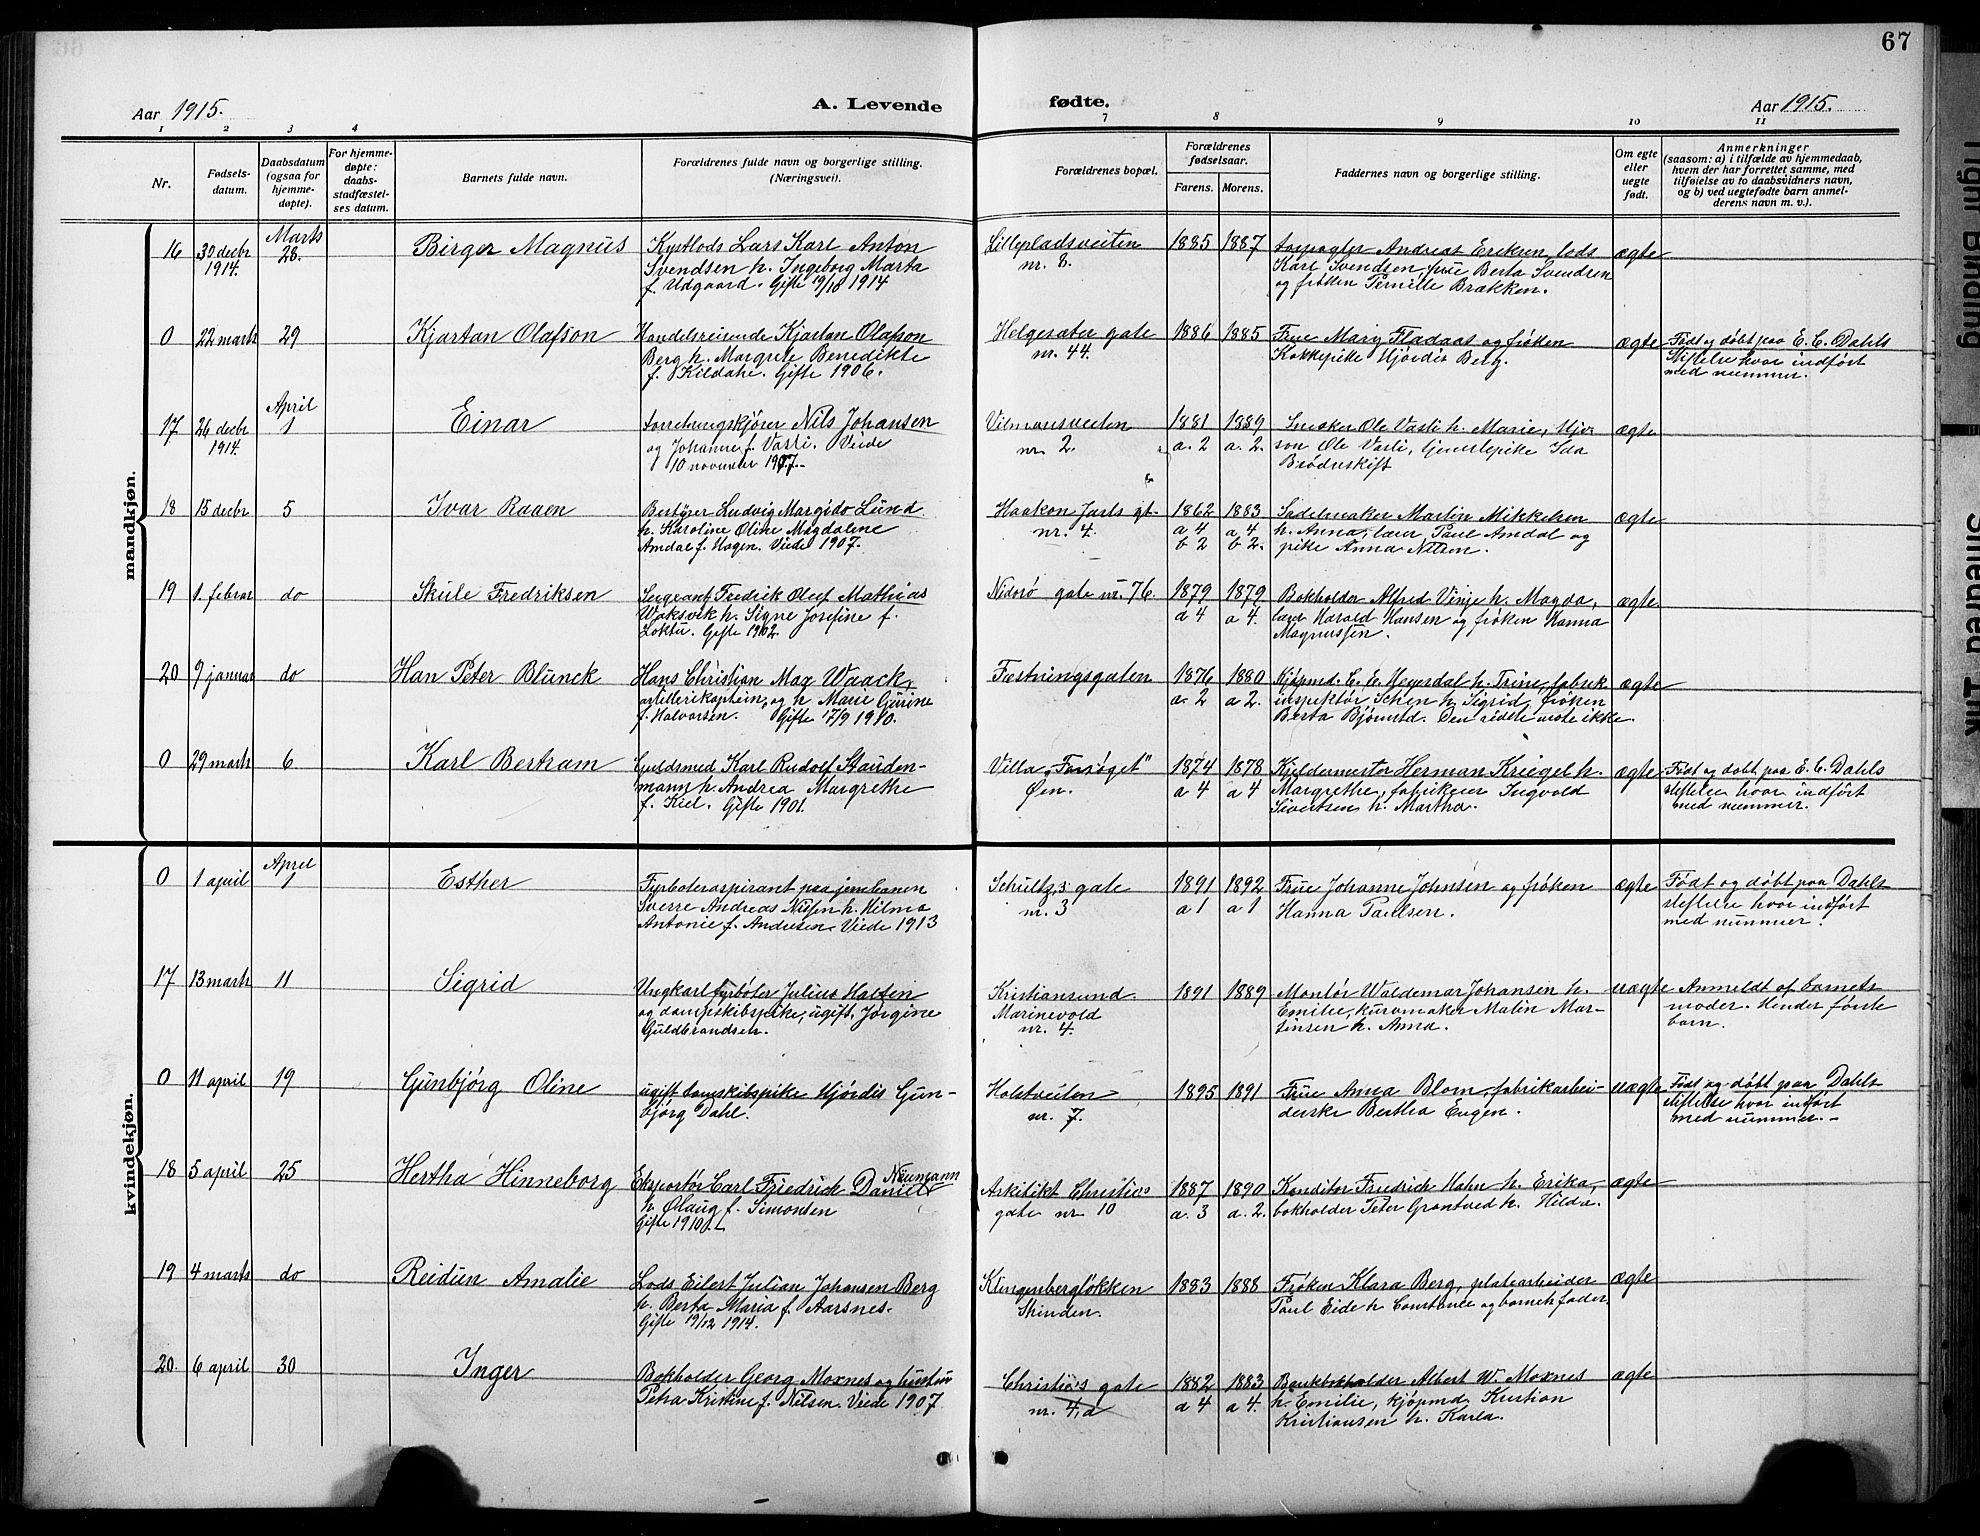 67
Aar 1915.
A. Levende
fødte.
Aar 1915.
1 2 3 4 7 8 9 10 11
Nr.
Fødsels-
datum.
Daabsdatum
(ogsaa for
hjemme-
døpte).
For hjemme-
døpte:
daabs-
stadfæstel-
ses datum.
Barnets fulde navn.
Forældrenes fulde navn og borgerlige stilling.
(Næringsvei).
Forældrenes bopæl.
Forældrenes
fødselsaar.
Farens. Morens.
Faddernes navn og borgerlige stilling.
Om egte
eller
uegte
født.
Anmerkninger
(saasom: a) i tilfælde av hjemmedaab,
hvem der har forrettet samme, med
tilføielse av to daabsvidners navn,
og b) ved uegtefødte barn anmel-
derens navn m. v.).
mandkjøn.
16 30 decbr 1914. Marts 28. Birger Magnus
Kystlods Lars Karl Anton
Svendsen h. Ingeborg Marta
f. Udgaard. Gifte 19/10 1914
Lillepladsveiten
nr. 8.
1885 1887
Andreas Eriksen, lods
Karl Svendsen, frue Berta Svendsen
og frøken Pernille Brækken.
ægte
0 22 marts 29 Kjartan Olafson
Handelsreisende Kjartan Olafson
Berg h. Margrete Benedikte
f. Kildahl. Gifte 1906.
Helgesæter gate
nr. 44.
1886 1885
Frue Mary Fladaas og frøken
Kokkepike Hjørdis Berg.
ægte
Født og døbt paa E. C. Dahls
Stiftelse hvor indført
med nummer.
17 26 decbr 1914. April 1 Einar
Forretningskjører Nils Johansen
og Johanne f. Vasli. Viede
10 november 1907.
Vilmansveiten
nr. 2.
1881 a. 2 1889 a. 2.
Snekker Ole Vasli h. Marie,
son Ole Vasli, Ida
ægte
18 15 decbr 5 Ivar Raaen
Bestyrer Ludvig Margido Lund
h. Karoline Oline Magdalene
Amdal f. Hagen. Viede 1907.
Haakon Jarls gt.
nr. 4.
1862 a 4 b 2 1883 a 4 b 2.
Sadelmaker Martin Mikkelsen
h. Anna, Paul Amdal og
pike Anna Nilsen.
ægte
19 1. februar do Skule Fredriksen
Sergeant Fredrik Oluf Mathias
Waksvik h. Signe Josefine f.
Loktu. Gifte 1902.
Nidarø gate nr. 76.
1879 a 4 1879 a 4.
Bokholder Alfred Vinje h. Magda,
Harald Hansen og frøken Hanna
Magnussen.
ægte.
20 9 januar do Han Peter Blunck
Hans Christian Max Waack,
artillerikaptein, og h. Marie Gurine
f. Halvorsen. Gifte 17/9 1910.
Fæstningsgaten
1876 a. 2 1880 a 2
Kjøpmd. C. C. Meyerdal h. Trine, fabrik
inspektør h. Sigrid, frøken
Berta Den sidste møtte ikke.
ægte
0 29 marts 6 Karl Bertram
Guldsmed Karl Rudolf Stauden-
mann h. Andrea Margrethe
f. Kiel. Gifte 1901.
Villa „Forsøget"
Øen.
1874 a 4 1878 a 4
Kjeldermester Herman Kriegel h.
Margrethe, fabrikeier Ingvold
Sivertsen h. Martha.
ægte
Født og døbt paa E. C. Dahls
stiftelse hvor indført
med nummer.
kvindekjøn.
0 1 april April 7 Esther
Fyrbøteraspirant paa jernbanen
Sverre Andreas Nilsen h. Hilma
Antonie f. Andresen. Viede 1913
Schultz's gate
nr. 3
1891 a 1 1892 a 1
Frue Johanne Johnsen og frøken
Hanna Paulsen.
ægte
Født og døbt paa Dahls
stiftelse hvor indført
med nummer.
17 13 marts 11 Sigrid
Ungkarl fyrbøter Julius Halsen
og dampskibspike, ugift, Jørgine
Guldbrandsen.
Kristiansund.
Marinevold
nr. 4.
1891 1889
Montør Waldemar Johansen h.
Emilie, kurvmaker Malin Mar-
tinsen h. Anna.
uægte
Anmeldt af barnets
moder. Hendes første
barn.
0 11 april 19 Gunbjørg Oline
ugift damskibspike Hjørdis Gun-
bjørg Dahl.
Holstveiten
nr. 7.
1895 1891
Frue Anna Blom, fabrikarbei-
derske Bertha Eugen.
uægte
Født og døbt paa Dahls
stiftelse hvor indført
med nummer.
18 5 april 25 Hertha Hinneborg
Eksportør Carl Friedrich Daniel Neumann
h. Ølaug f. Simonsen
Gifte 1910.
Arkitekt Christies
gate nr 10
1887 a. 3 1890 a. 2.
Konditor Friedrich Hahn h. Erika,
bokholder Peter Grøntved h. Hilda.
ægte
19 4 marts do Reidun Amalie
Lods Eilert Julian Johansen Berg
h. Berta Maria f. Aarsnes.
Gifte 19/12 1914.
Klingenbergløkken
Skinden.
1883 1888
Frøken Klara Berg, platearbeider
Paul Eide h. Constance og barnets fader.
ægte
20. 6 april 30 Inger
Bokholder Georg Moxnes og hustru
Petra Kristine f. Nilsen. Viede 1907
Christie's gate
nr. 4, a
1882 a 4 1883 a 4.
Bankbokholder Albert W. Moxnes
h. Emilie, kjøpmd. Kristian
Kristiansen h. Karla.
ægte
Tight Binding
Smeared Ink